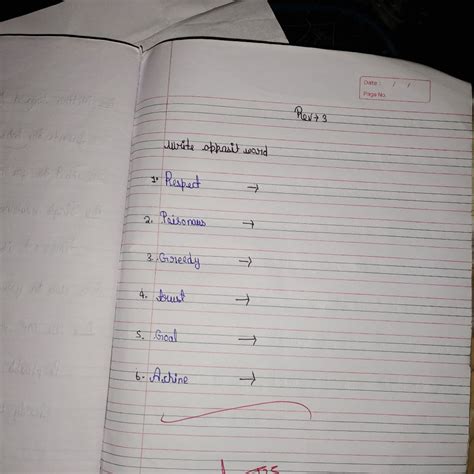 Date: / /
Page No.
Rev → 3
Write opposit word
1. Respect →
2. Poisonous →
3. Greedy →
4. trust →
5. Goal →
6. Achine →